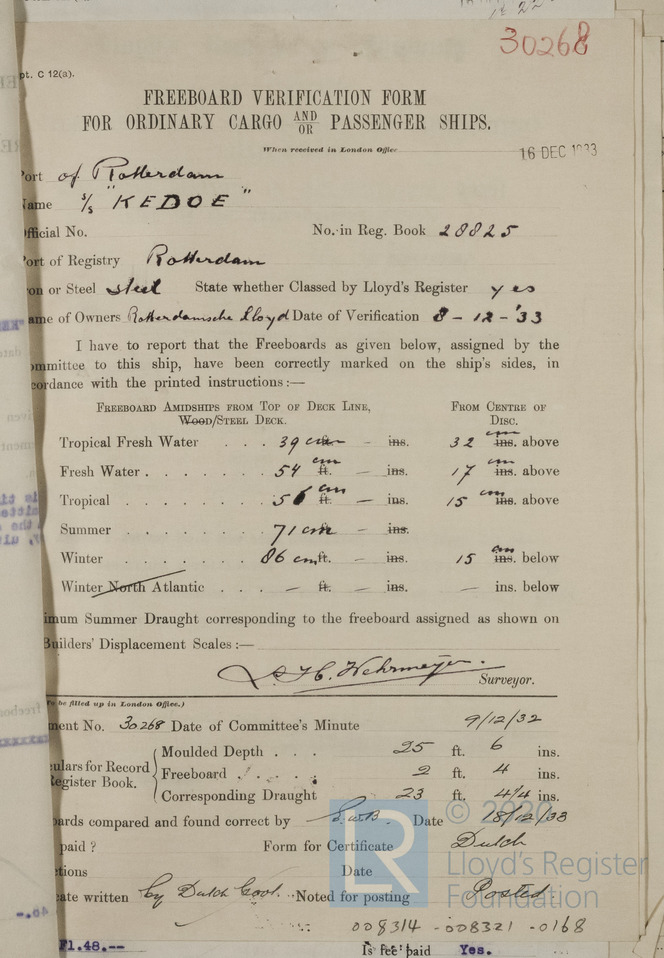 30268
pt. C 12(a).
FREEBOARD VERIFICATION FORM
FOR ORDINARY CARGO AND/OR PASSENGER SHIPS.
When received in London Office 16 DEC 1933
Port of Rotterdam
Name s/s "KEDOE"
fficial No. No. in Reg. Book 28825
Port of Registry Rotterdam
on or Steel steel State whether Classed by Lloyd's Register yes
ame of Owners Rotterdamsche Lloyd Date of Verification 8-12-'33
I have to report that the Freeboards as given below, assigned by the
ommittee to this ship, have been correctly marked on the ship's sides, in
cordance with the printed instructions:—
FREEBOARD AMIDSHIPS FROM TOP OF DECK LINE, FROM CENTRE OF
WOOD/STEEL DECK. DISC.
Tropical Fresh Water . . . 39 cm – ins. 32 cm ins. above
Fresh Water . . . . . . . 54 cm ft. – ins. 17 cm ins. above
Tropical . . . . . . . . 56 cm ft. – ins. 15 cm ins. above
Summer . . . . . . . . 71 cm ft. – ins.
Winter . . . . . . . . 86 cm ft. – ins. 15 cm ins. below
Winter North Atlantic . . . – ft. – ins. – ins. below
imum Summer Draught corresponding to the freeboard assigned as shown on
Builders' Displacement Scales:—
Wehrmeyer.
Surveyor.
To be filled up in London Office.)
ment No. 30268 Date of Committee's Minute 9/12/32
Moulded Depth . . . 25 ft. 6 ins.
ulars for Record
Register Book.
Freeboard . . . . . 2 ft. 4 ins.
Corresponding Draught 23 ft. 4/4 ins.
ards compared and found correct by Date 18/12/33
paid? Form for Certificate Dutch
tions Date
ate written by Dutch Govt. Noted for posting Posted.
© 2020
LR
Lloyd's Register
Foundation
008314-008321-0168
Fl.48.-- Is fee paid Yes.